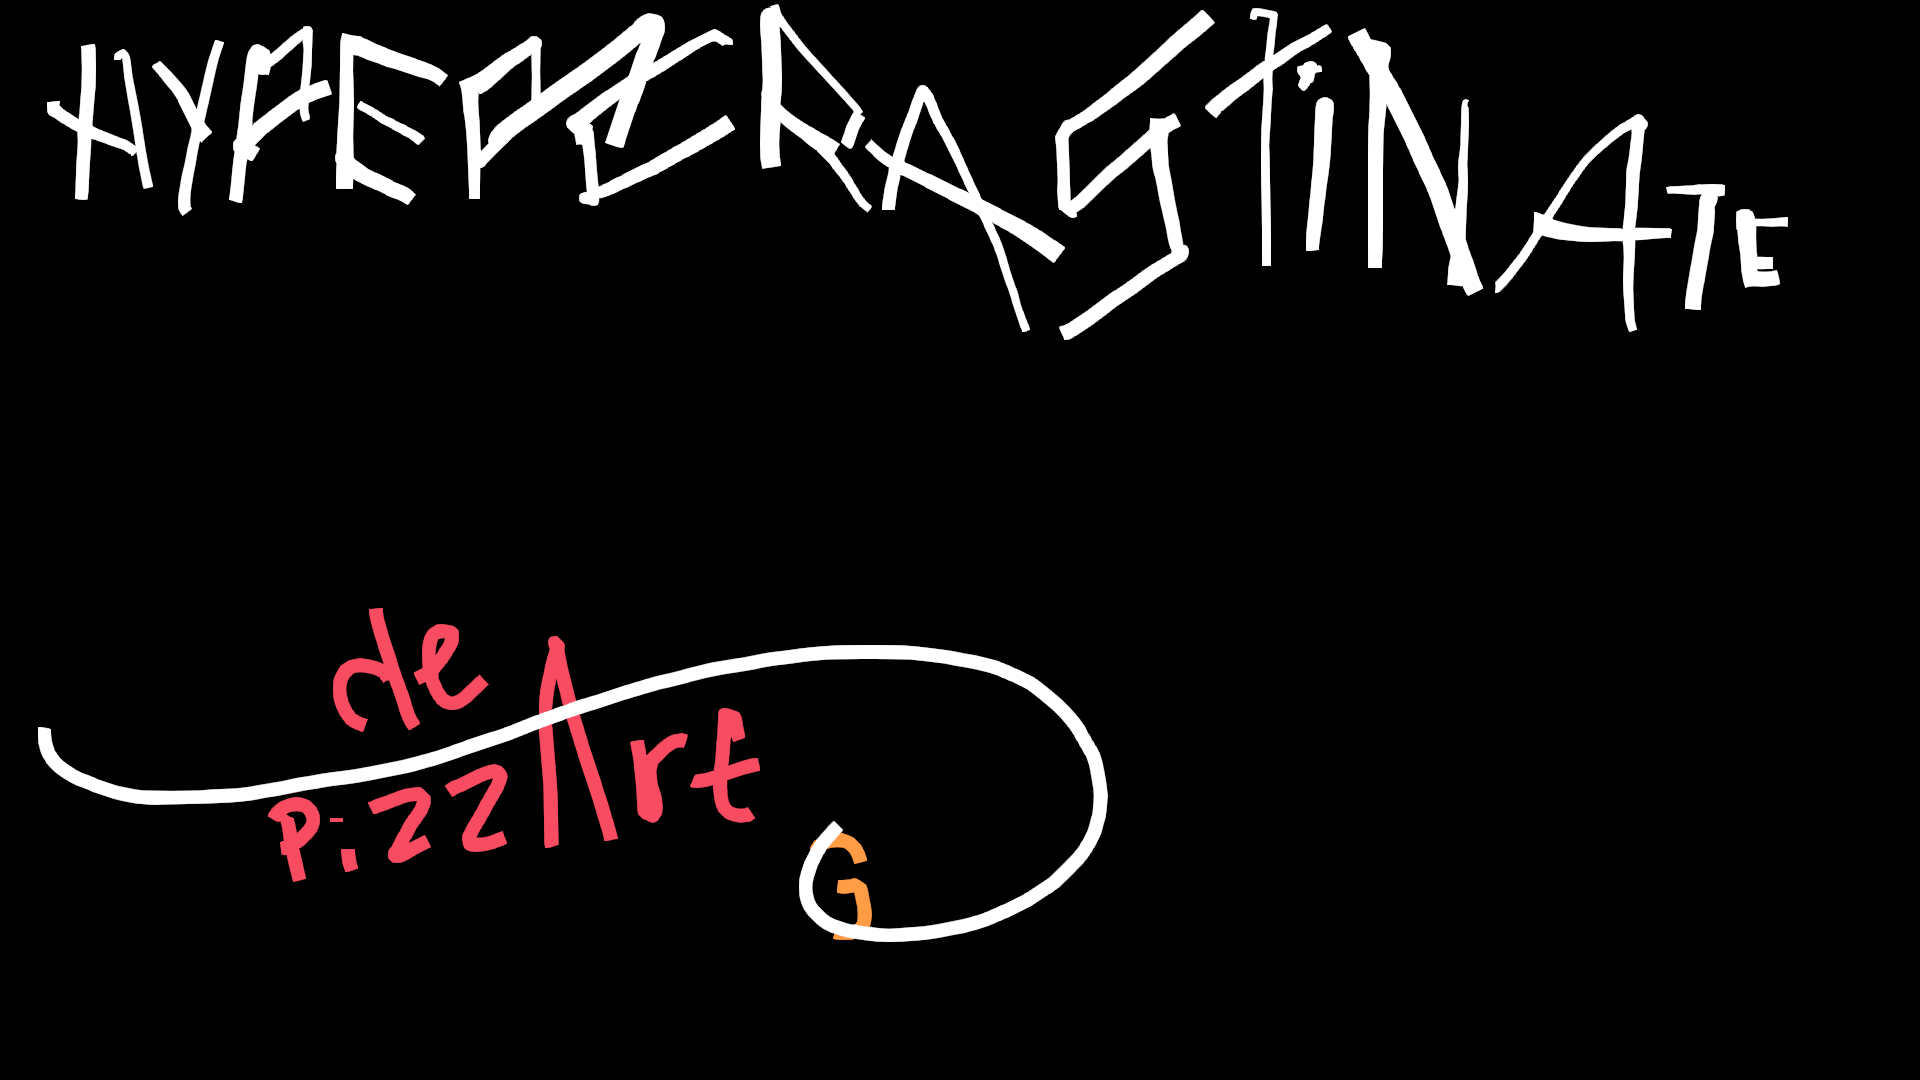 HYPEPERASTiNATE
de
PizzArt
G